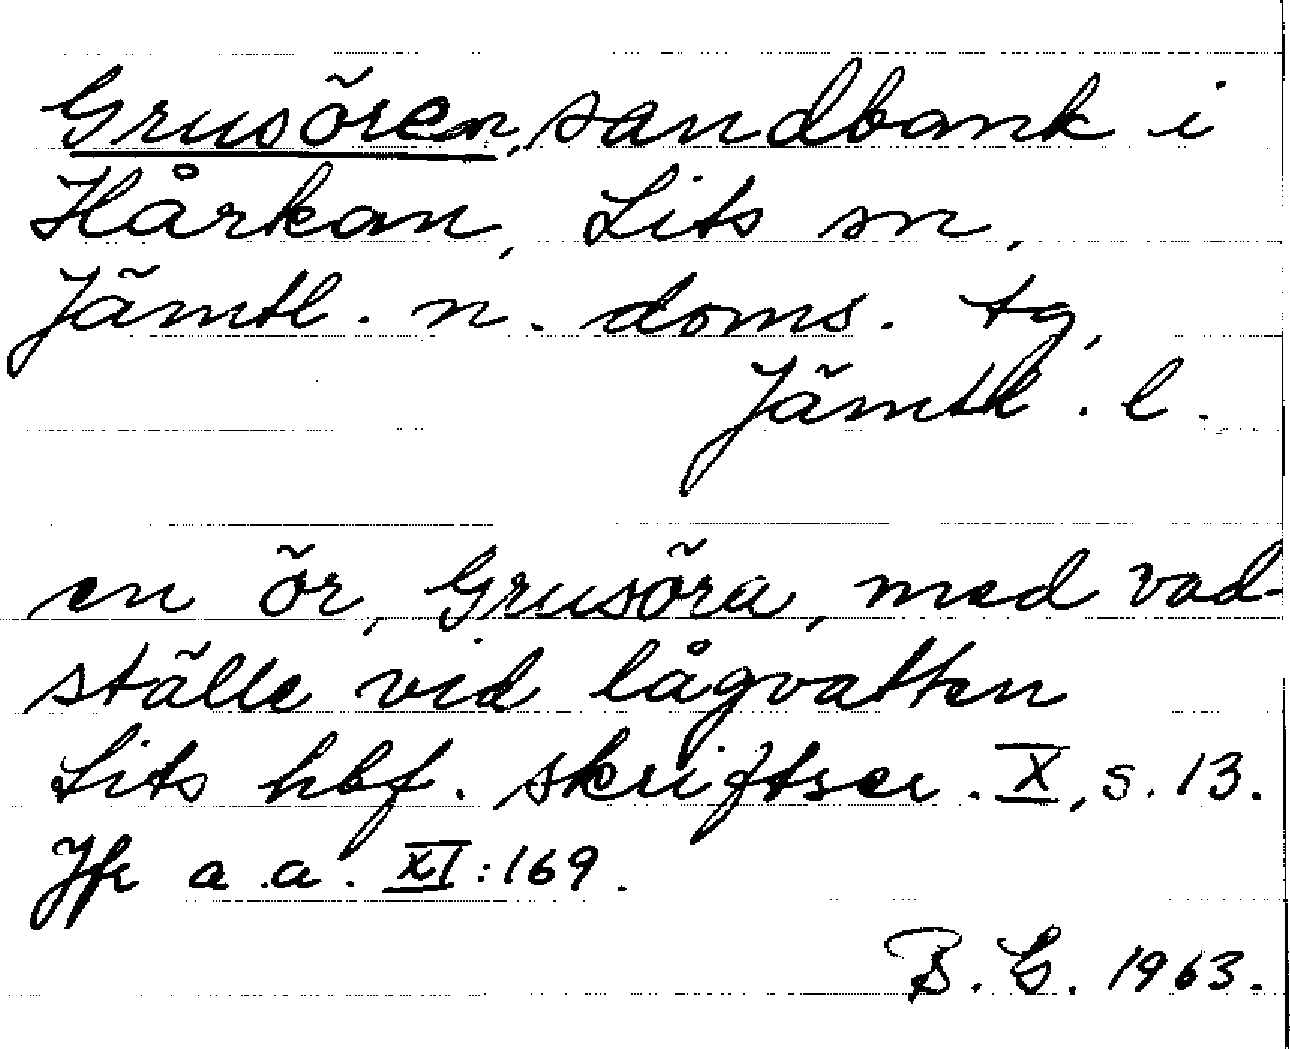 Grusören, sandbank i
Hårkan, Lits sn,
Jämtl. n. doms. tg,
Jämtl. l.
en ör, Grusöra, med vad-
ställe vid lågvatten
Lits hbf. skriftser. X, s. 13.
Jfr a.a. XI:169.
B.G. 1963.